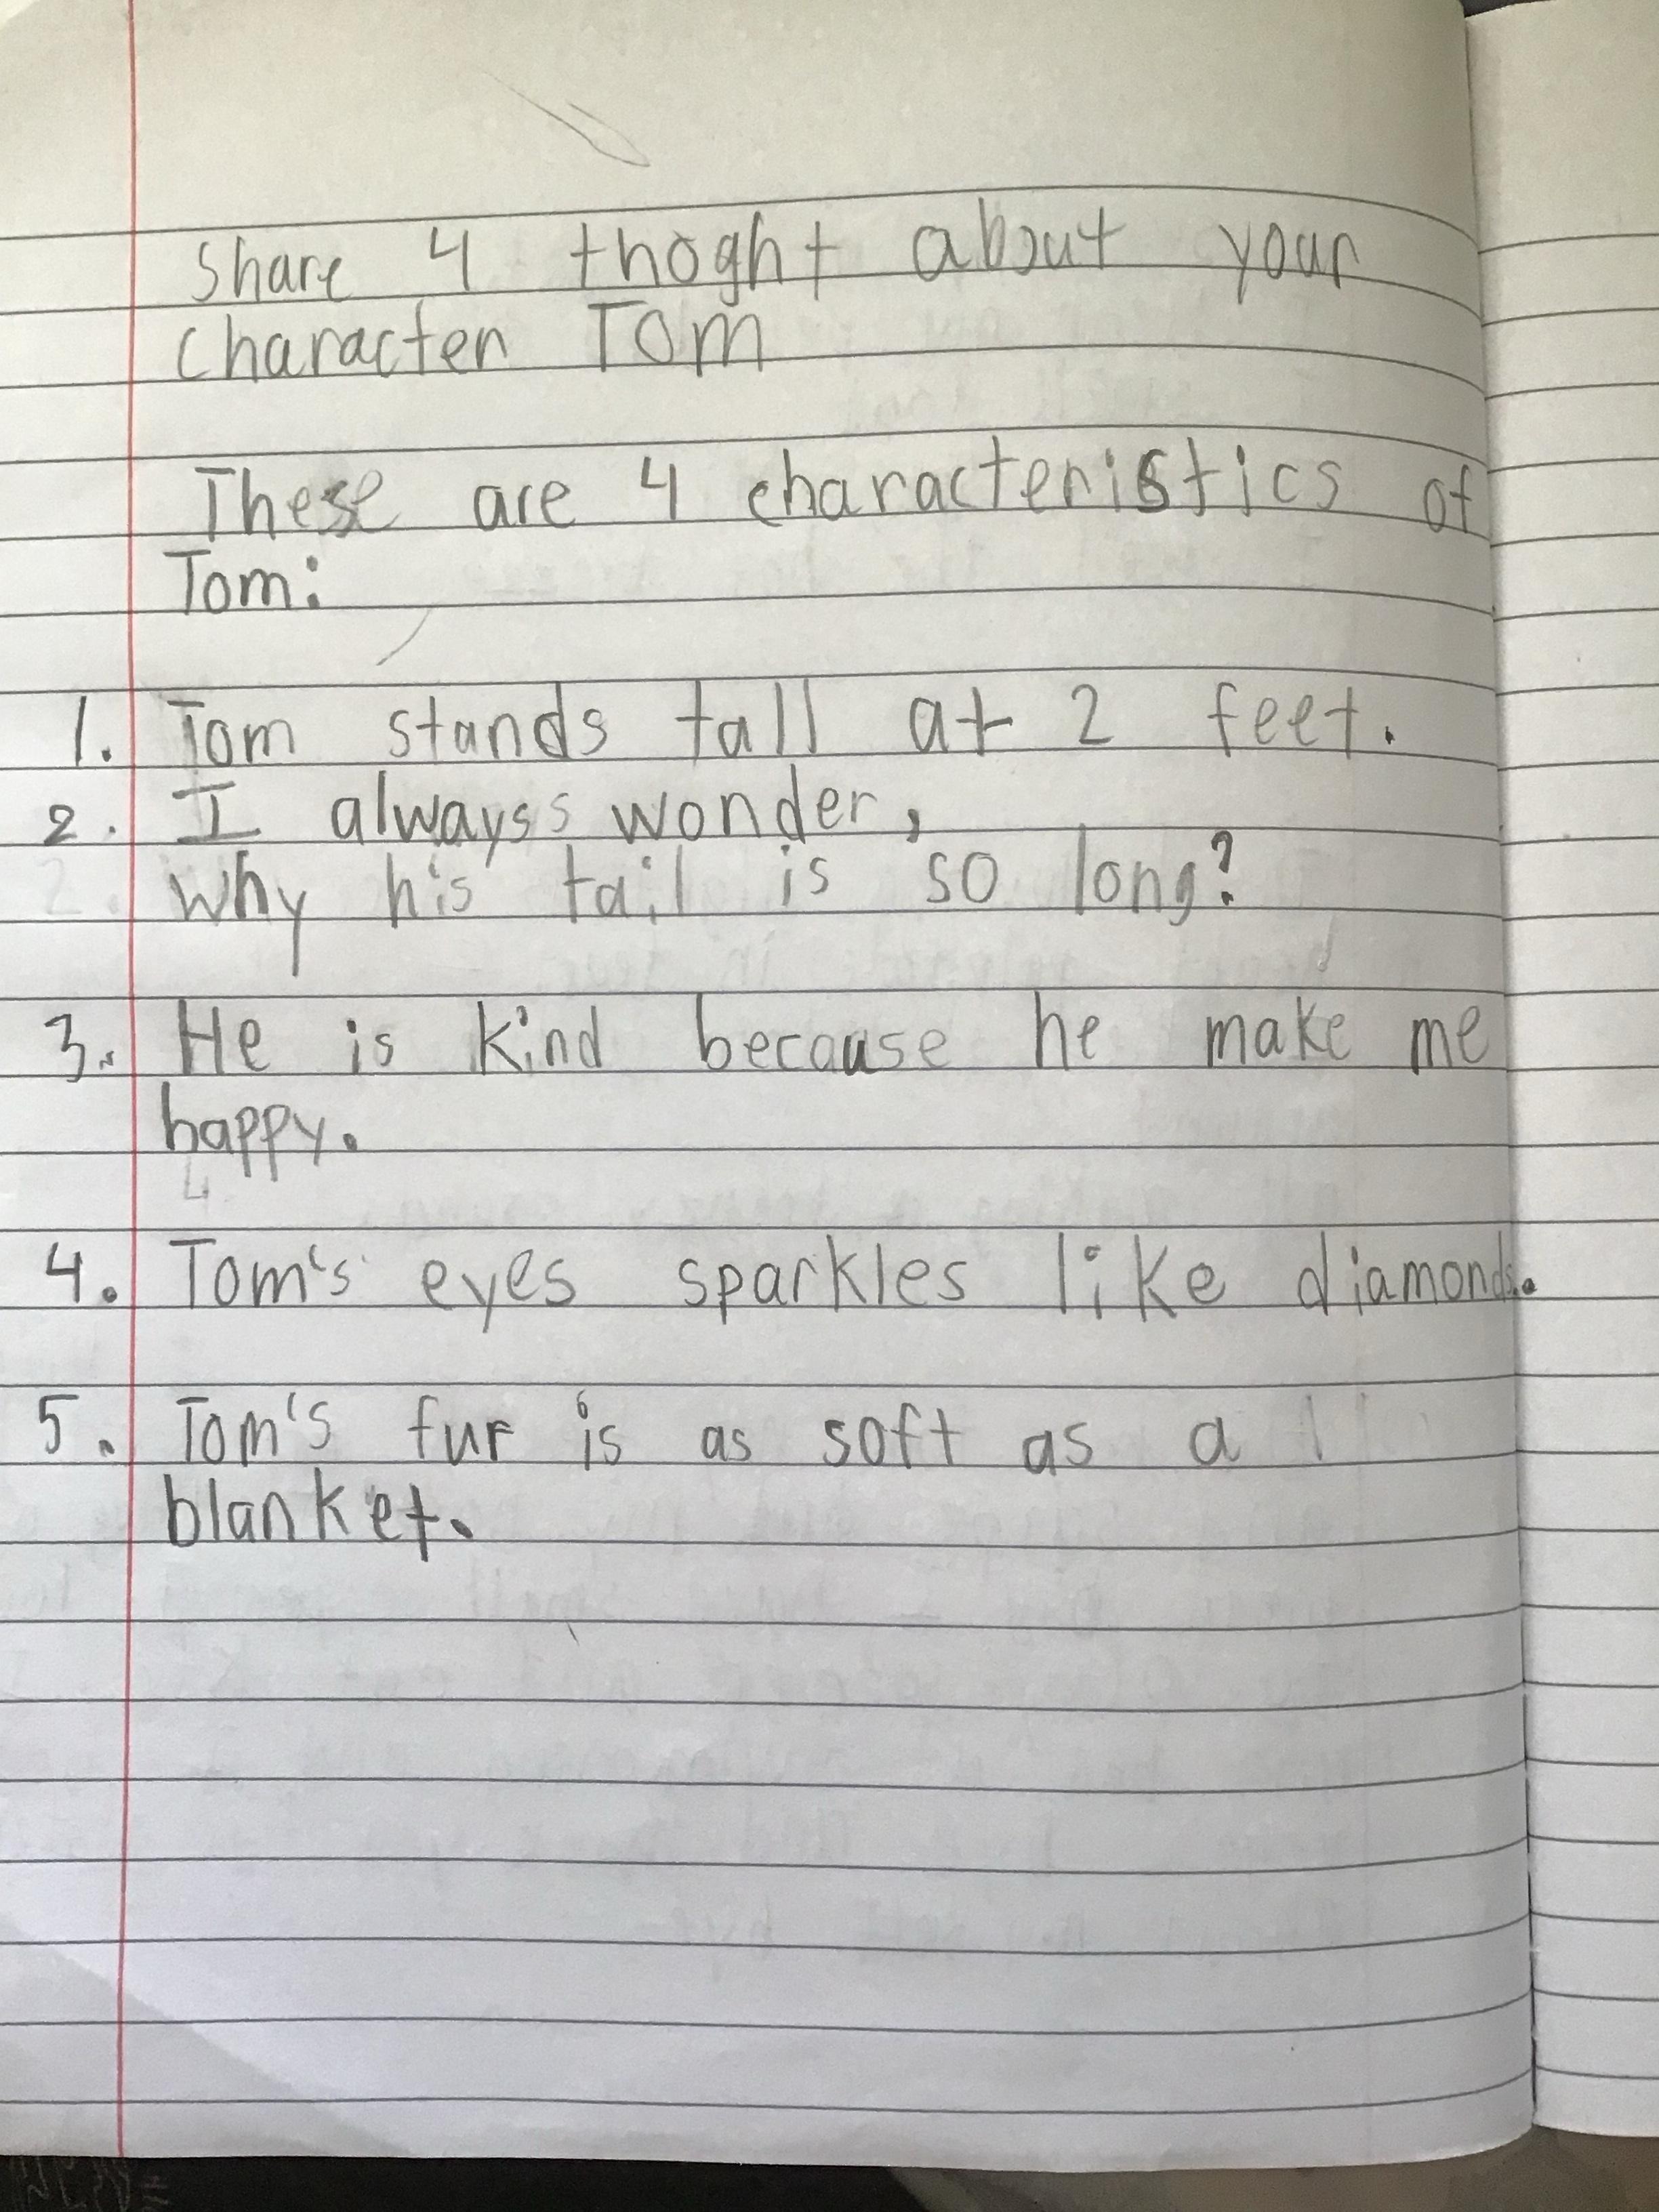 Share 4 thoght about your
character Tom
These are 4 characteristics of
Tom:
1. Tom stands tall at 2 feet.
2. I alwayss wonder,
why his tail is so long?
3. He is kind because he make me
happy.
4. Tom's eyes sparkles like diamonds.
5. Tom's fur is as soft as a
blanket.